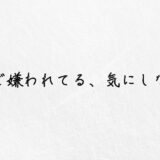 ど嫌われてる、気にしな